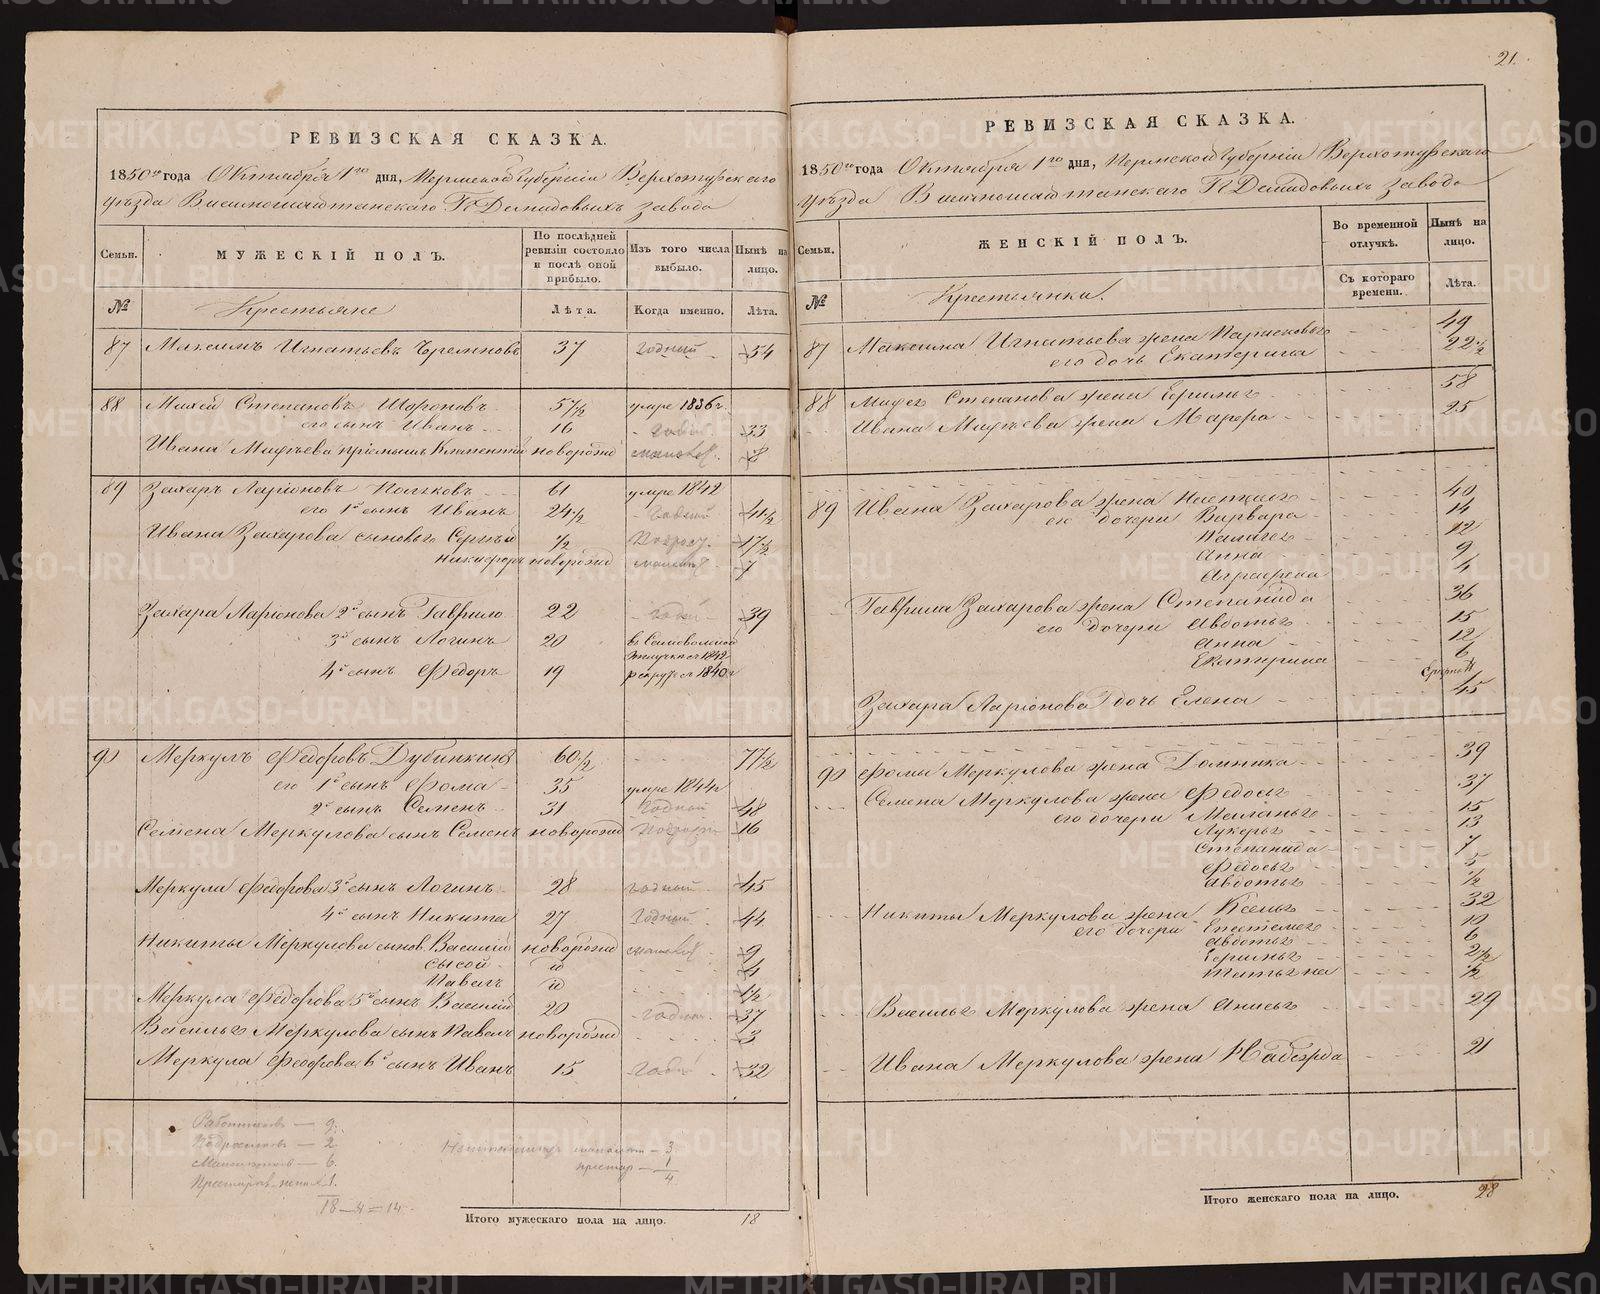 21.
РЕВИЗСКАЯ СКАЗКА.
1850го года Октября 1го дня, Пермской Губернии Верхотурскаго
уѣзда Висимошайтанскаго Гг Демидовыхъ завода
Семьи. МУЖЕСКІЙ ПОЛЪ. По послѣдней ревизіи состояло и послѣ оной прибыло. Изъ того числа выбыло. Нынѣ на лицо.
№ Крестьяне Лѣта. Когда именно. Лѣта.
87 Максимъ Игнатьевъ 37 годный 54
88 Михей Степановъ 57½ умре 1836г.
его сынъ Иванъ 16 годный 33
Ивана Михѣева пріемышъ Климентій новорожд 8
89 Захаръ Ларіоновъ 61 умре 1842
его 1й сынъ Иванъ 24½ годный 41½
Ивана Захарова сыновья Сергѣй ½ 17½
Никифоръ новорожд 7
Захара Ларіонова 2й сынъ Гаврило 22 годный 39
3й сынъ Логинъ 20 въ Самовольной отлучкѣ съ 1842
4й сынъ Федоръ 19 рекрутъ 1840г
90 Меркулъ Федоровъ Дубинкинъ 60½ 77½
его 1й сынъ Фома 35 умре 1844г
2й сынъ Семенъ 31 годный 48
Семена Меркулова сынъ Семенъ новорожд 16
Меркула Федорова 3й сынъ Логинъ 28 годный 45
4й сынъ Никита 27 годный 44
Никиты Меркулова сынов. Василій новорожд 9
Сысой id 4
Павелъ id 1½
Меркула Федорова 5й сынъ Василій 20 годный 37
Василья Меркулова сынъ Павелъ новорожд 3
Меркула Федорова 6й сынъ Иванъ 15 годный 32
Работниковъ — 9.
Подростковъ — 2
— 6.
— 1.
18 — 4 = 14
— 3
— 1
4
Итого мужескаго пола на лицо. 18
РЕВИЗСКАЯ СКАЗКА.
1850го года Октября 1го дня, Пермской Губерніи Верхотурскаго
уѣзда Висимошайтанскаго Гг Демидовыхъ завода
Семьи. ЖЕНСКІЙ ПОЛЪ. Во временной отлучкѣ. Нынѣ на лицо.
№ Крестьянки. Съ котораго времени. Лѣта.
87 Максима Игнатьева жена 49
его дочь Екатерина 22½
88 Михея Степанова жена 58
Ивана Михѣева жена Марфа 25
89 Ивана Захарова жена Настасья 40
его дочери Варвара 14
Палагея 12
Анна 9
Аграфена 4
Гаврила Захарова жена Степанида 36
его дочери Авдотья 15
Анна 12
Екатерина 6
Захара Ларіонова дочь Елена 45
90 Фомы Меркулова жена Домника 39
Семена Меркулова жена Федосья 37
его дочери Меланья 15
Лукерья 13
Степанида 7
Федосья 5
Авдотья ½
Никиты Меркулова жена Ксенья 32
его дочери 10
Авдотья 6
2½
Татьяна ½
Василья Меркулова жена Анисья 29
Ивана Меркулова жена Надежда 21
Итого женскаго пола на лицо. 28
METRIKI.GASO-URAL.RU